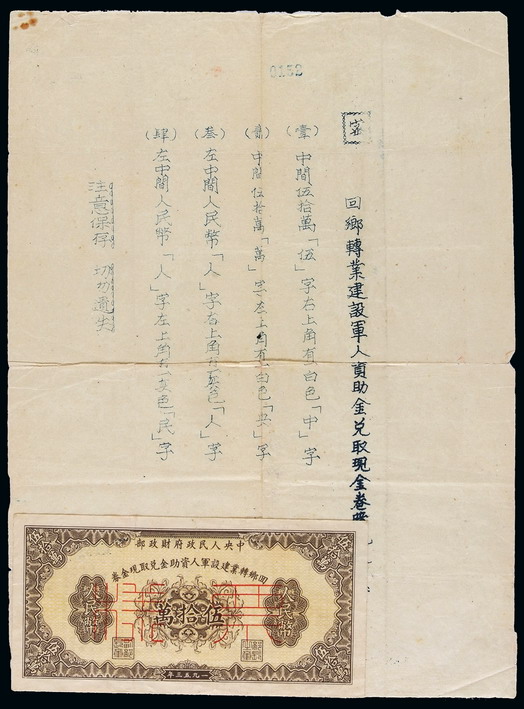 0152
密
回鄉轉業建設軍人資助金兑取現金卷暗
(壹) 中間伍拾萬「伍」字右上角有一白色「中」字
(貳) 中間伍拾萬「萬」字左上角有一白色「央」字
(叁) 左中間人民幣「人」字右上角有一英色「人」字
(肆) 左中間人民幣「人」字左上角有一英色「民」字
注意保存 切勿遺失
部政財府政民人央中
券金現取兑金助資人軍設建業轉鄉回
人民幣
萬拾伍
人民幣
年三五九一